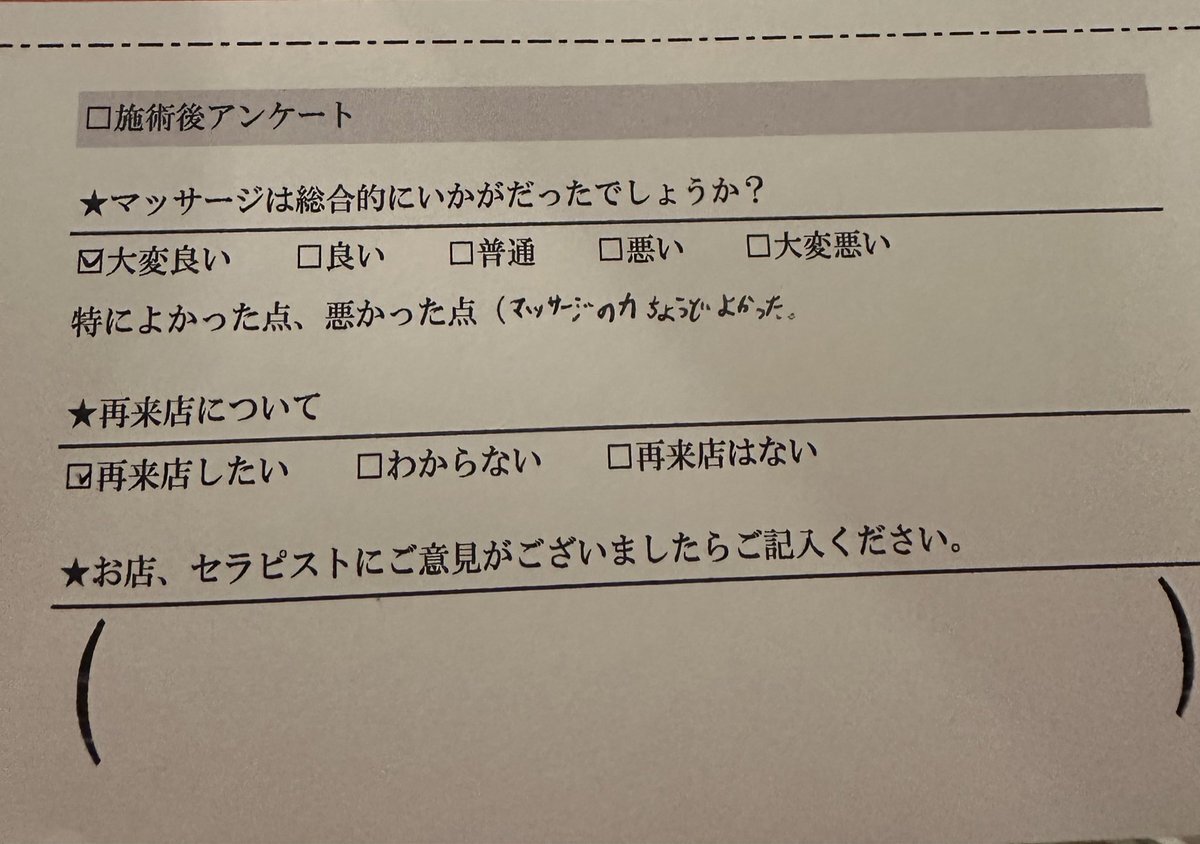 □施術後アンケート
★マッサージは総合的にいかがだったでしょうか？
☑大変良い □良い □普通 □悪い □大変悪い
特によかった点、悪かった点（マッサージの力ちょうどよかった。
★再来店について
☑再来店したい □わからない □再来店はない
★お店、セラピストにご意見がございましたらご記入ください。
（ ）